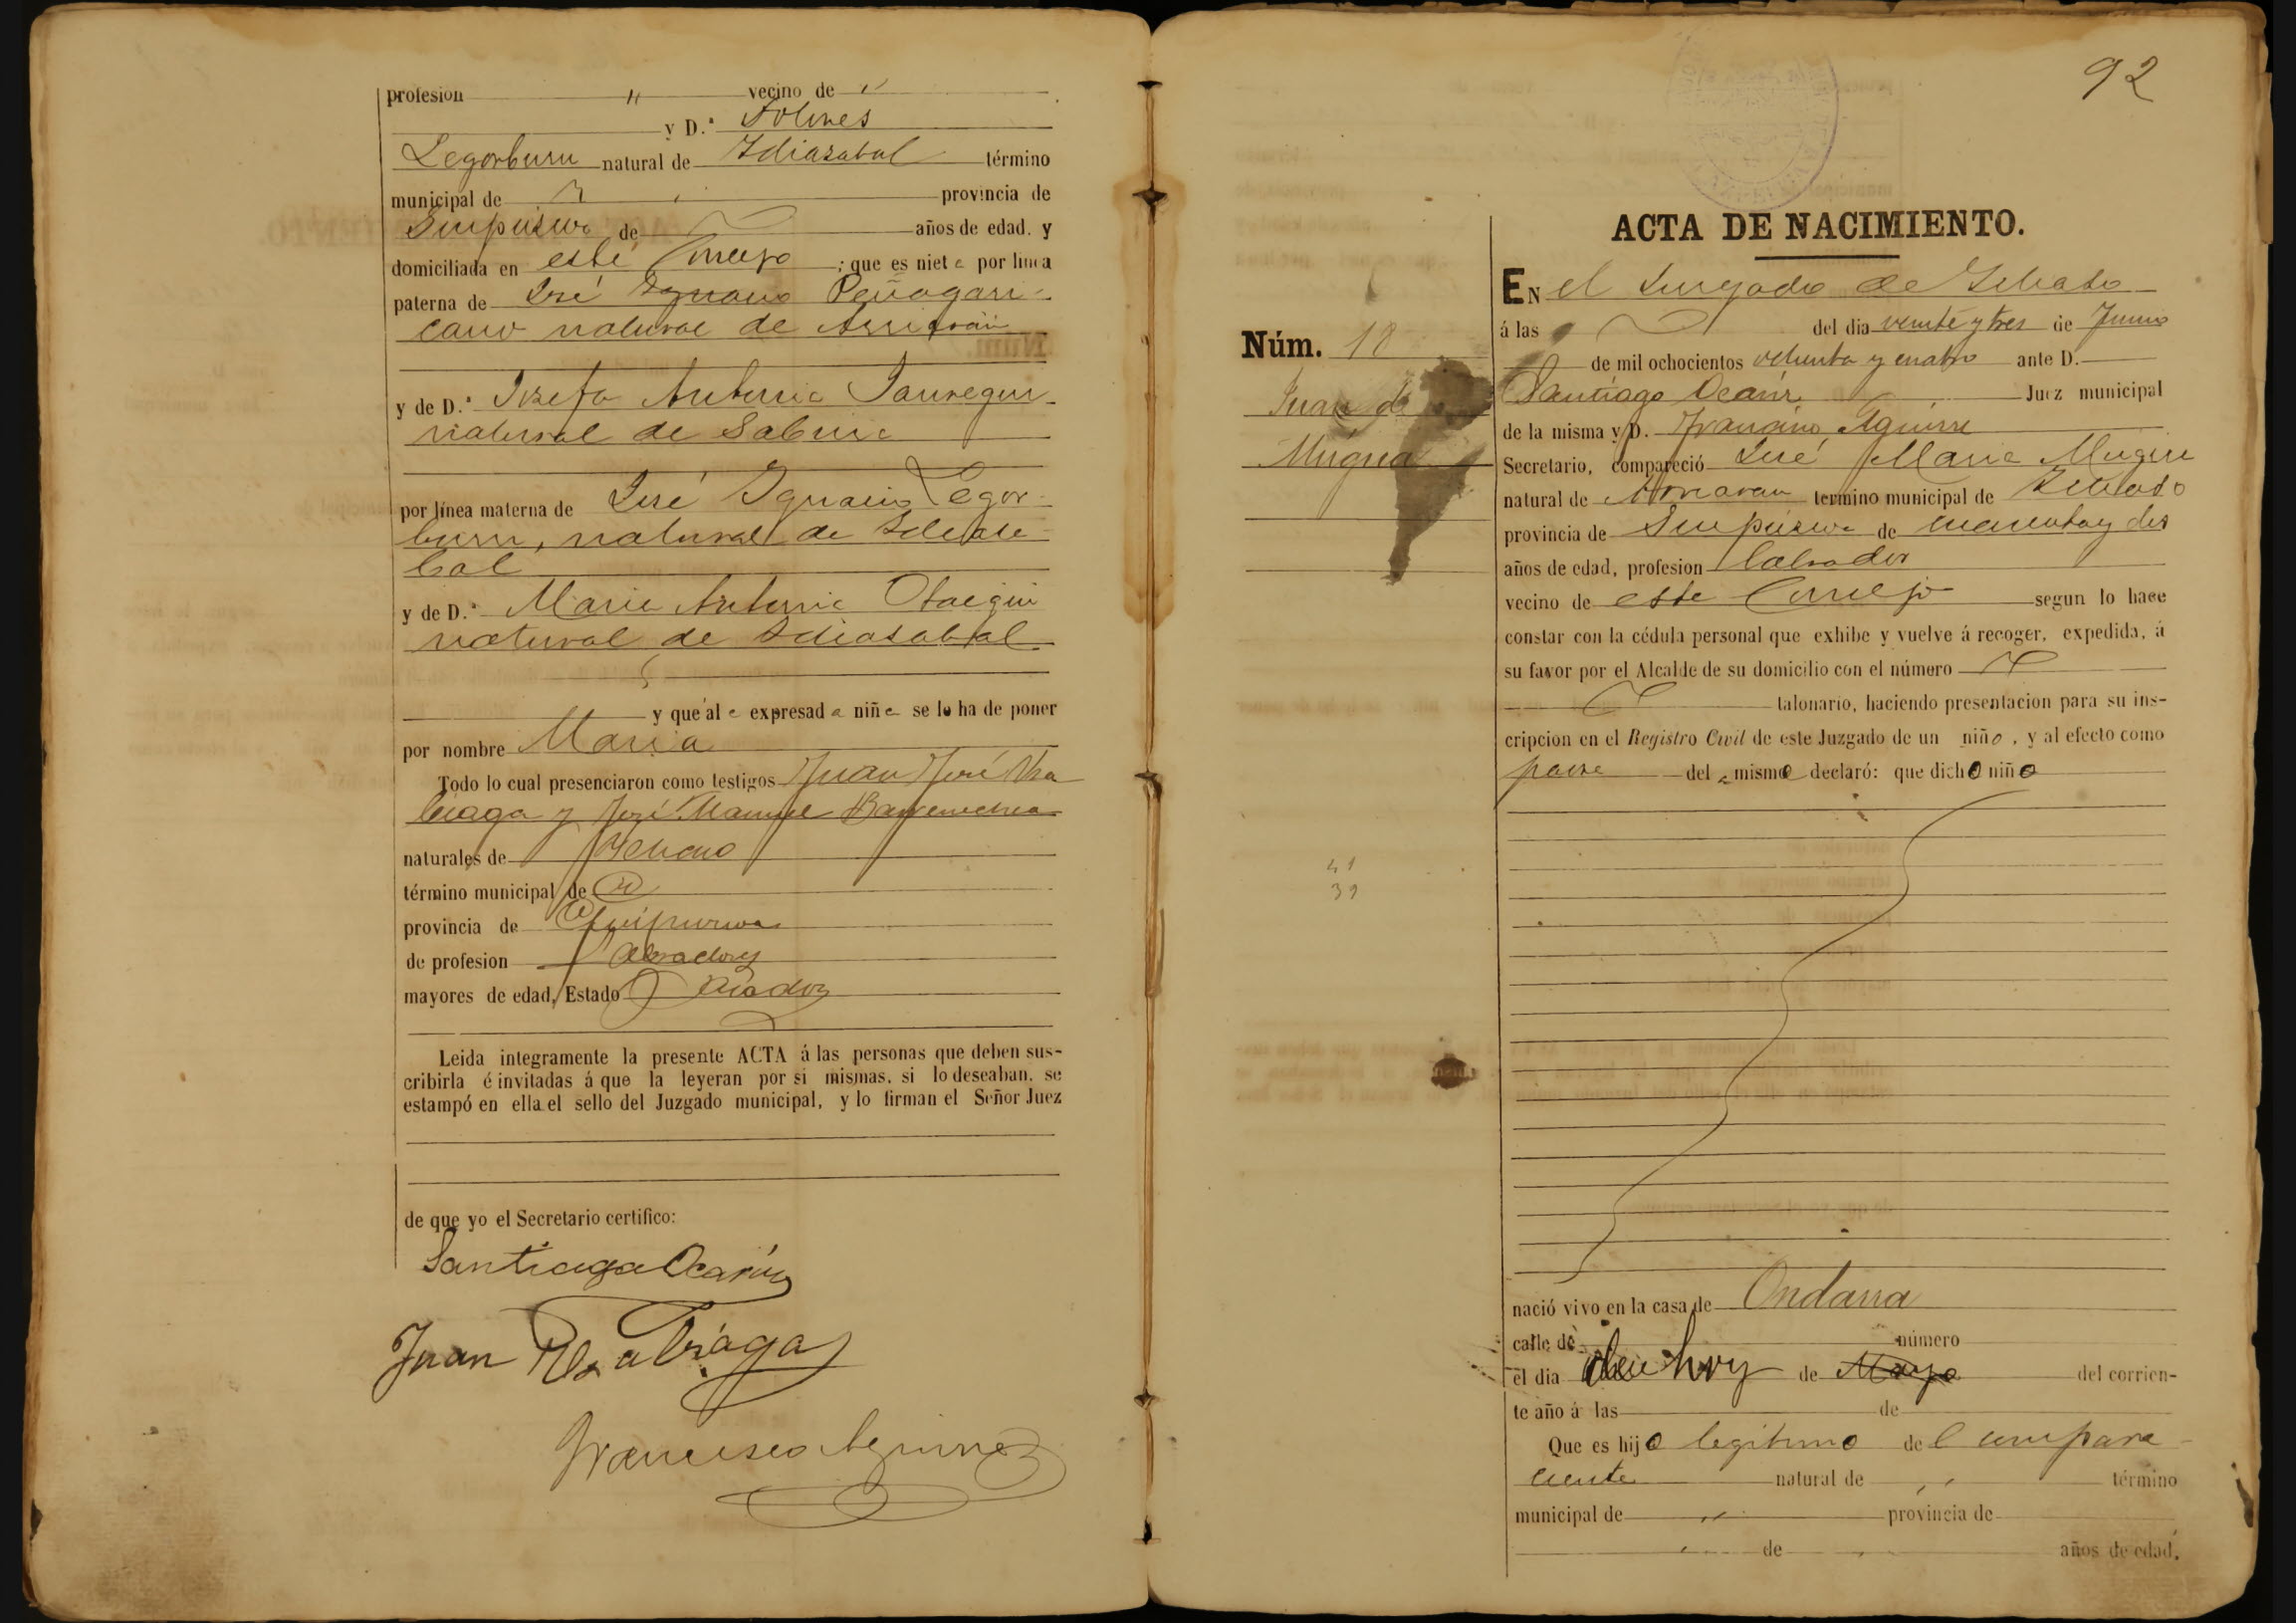 profesion " vecino de "
y D.ª Dolores
Legorburu natural de Idiazabal término
municipal de provincia de
Guipúzcoa de años de edad. y
domiciliada en este Concejo ; que es nieta por linea
paterna de José Ignacio Peñagari-
cano natural de
y de D.ª Josefa Antonia Jauregui
natural de
por línea materna de José Ignacio Legor-
buru, natural de Idiaza-
bal
y de D.ª Maria Antonia Otaegui
natural de Idiazabal
y que al a expresada niña se le ha de poner
por nombre Maria
Todo lo cual presenciaron como testigos Juan José Usa
biaga y José Manuel Barrenechea
naturales de
término municipal de id
provincia de Guipuzcoa
de profesion Labradores
mayores de edad, Estado
Leida integramente la presente ACTA á las personas que deben sus-
cribirla é invitadas á que la leyeran por si mismas, si lo deseaban, se
estampó en ella el sello del Juzgado municipal, y lo firman el Señor Juez
de que yo el Secretario certifico:
Santiago Ocariz
Juan Usabiaga
Francisco Aguirre
92
ACTA DE NACIMIENTO.
EN el Juzgado de
á las del dia veinte y tres de Junio
de mil ochocientos ochenta y cuatro ante D.
Núm. 18
Santiago Ocariz Juez municipal
Juan de
de la misma y D. Francisco Aguirre
Mugica
Secretario, compareció José Maria Mugica
natural de termino municipal de
provincia de Guipúzcoa de cuarenta y dos
años de edad, profesion labrador
vecino de este Concejo segun lo hace
constar con la cédula personal que exhibe y vuelve á recoger, expedida, á
su favor por el Alcalde de su domicilio con el número
talonario, haciendo presentacion para su ins-
cripcion en el Registro Civil de este Juzgado de un niño, y al efecto como
padre del mismo declaró: que dicho niño
41
39
nació vivo en la casa de Ondarra
calle de número
el dia de hoy de Mayo del corrien-
te año á las de
Que es hijo legitimo de l compare-
ciente natural de " término
municipal de " provincia de
" de " años de edad,